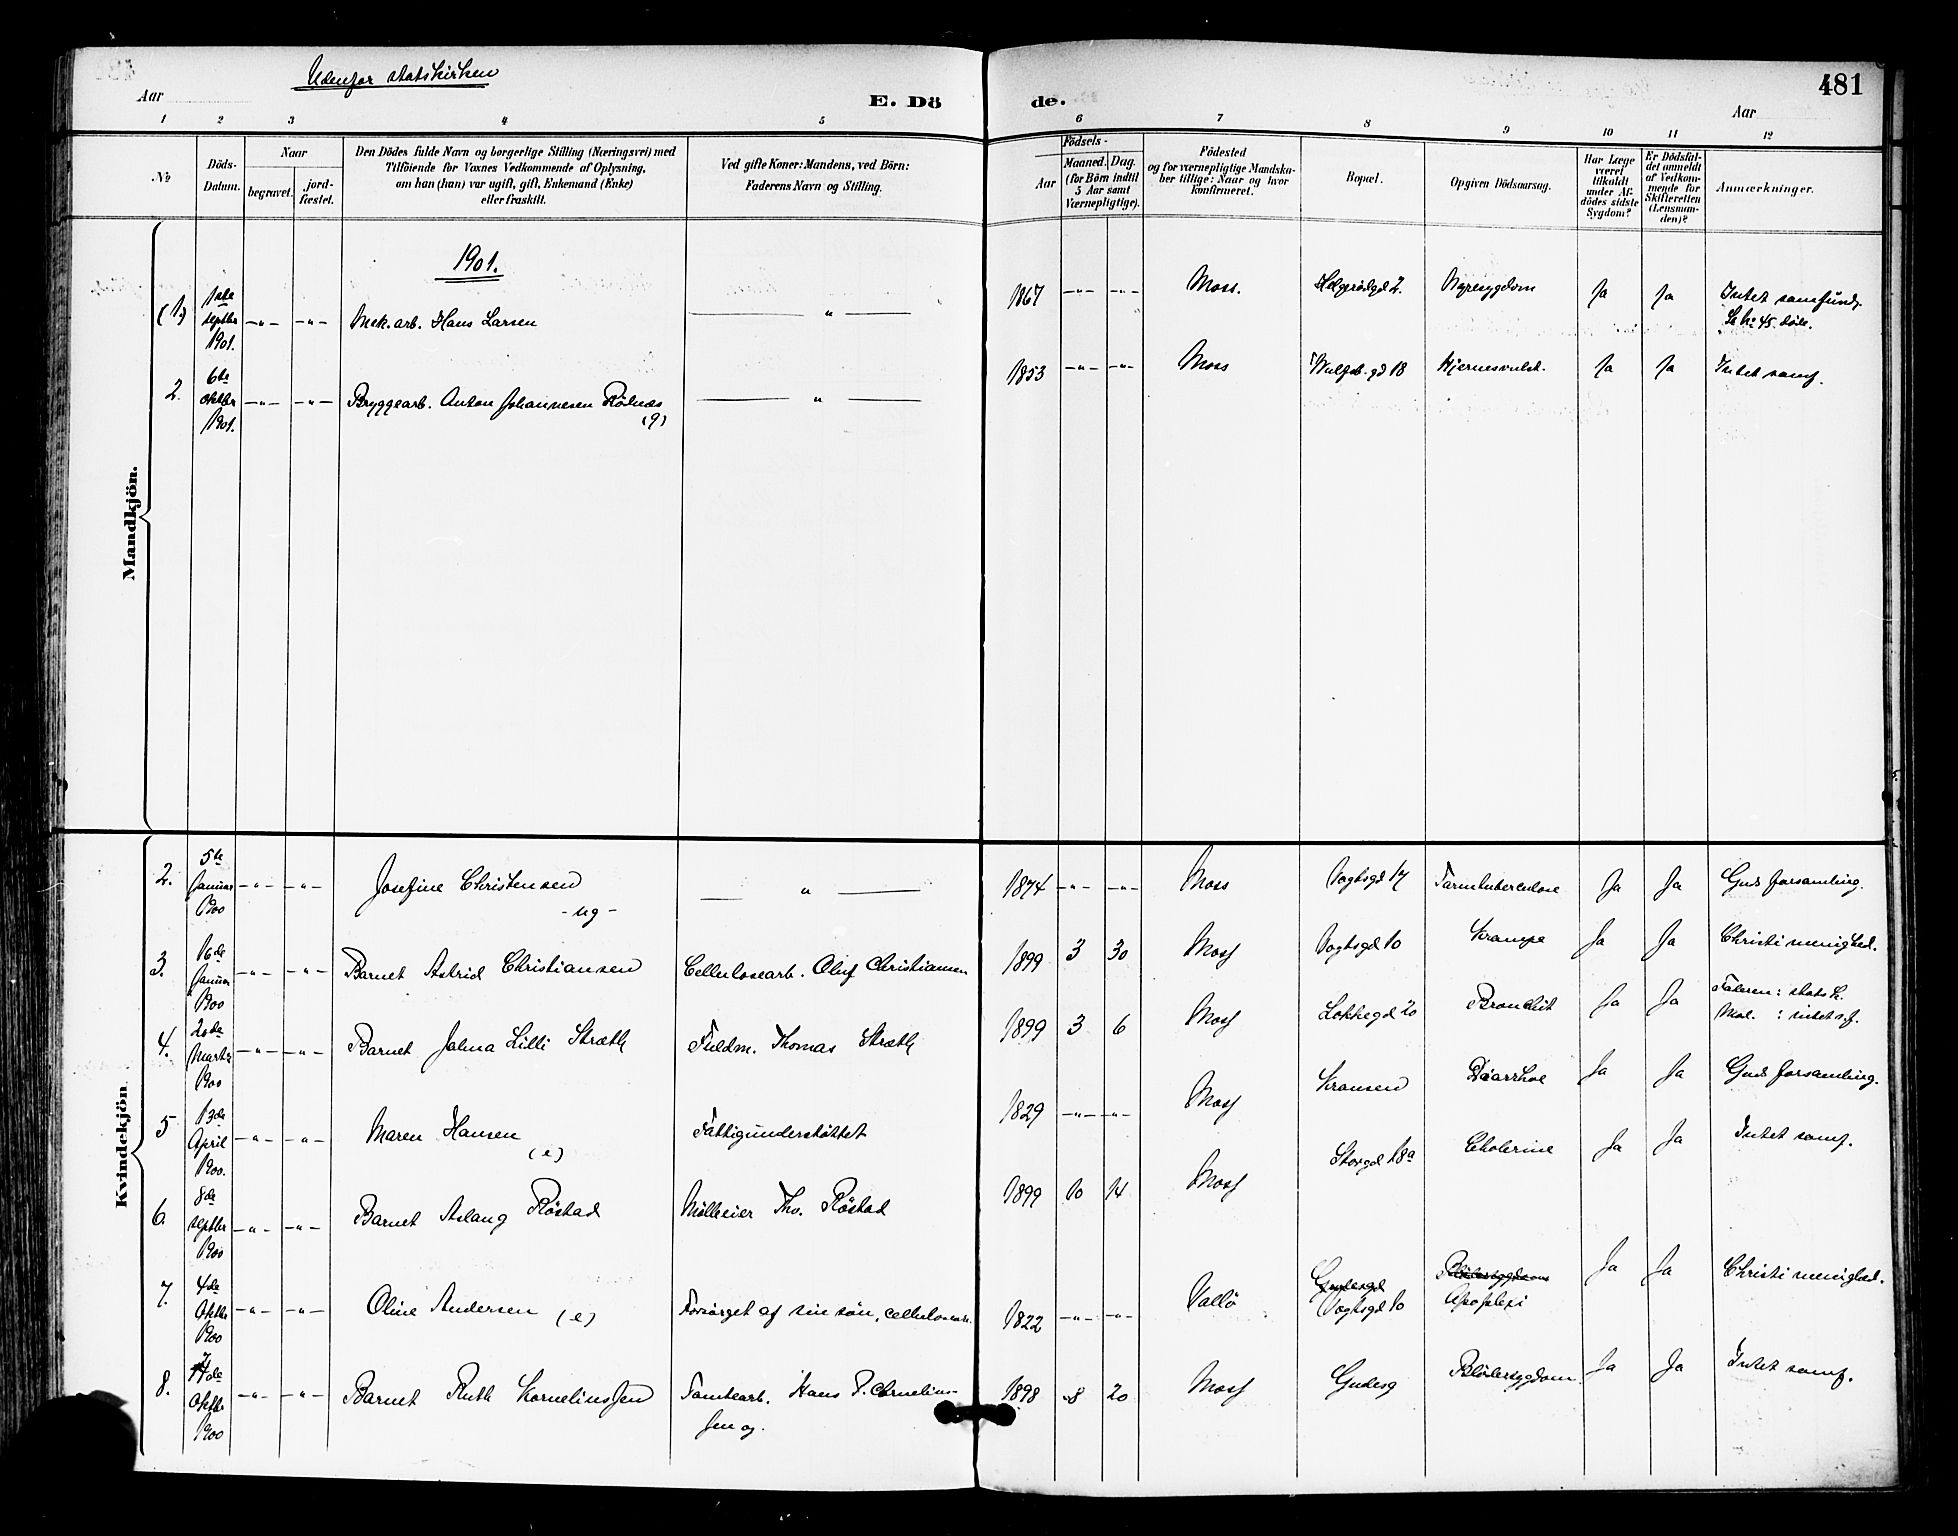 Udenfor statskirken
481
Aar
E. Dö
de.
Aar
1 2 3 4 5 6 7 8 9 10 11 12
№
Döds-
Datum.
Naar
begravet.
jord-
fæstet.
Den Dödes fulde Navn og borgerlige Stilling (Næringsvei) med
Tilföiende for Voxnes Vedkommende af Oplysning,
om han (hun) var ugift, gift, Enkemand (Enke)
eller fraskilt.
Ved gifte Koner: Mandens, ved Börn:
Faderens Navn og Stilling.
Födsels-
Aar
Maaned. Dag.
(for Börn indtil
5 Aar samt
Værnepligtige).
Födested
og for værnepligtige Mandska-
ber tillige: Naar og hvor
konfirmeret.
Bopæl.
Opgiven Dödsaarsag.
Har Læge
været
tilkaldt
under Af-
dödes sidste
Sygdom?
Er Dödsfal-
det anmeldt
af Vedkom-
mende for
Skifteretten
(Lensman-
den)?
Anmærkninger.
Mandkjön.
1901.
(1)
1ste
septbr
1901.
-"- -"-
Mek. arb. Hans Larsen
"
1867 -"- -"-
Moss.
Helgerødgd 2.
Nyresygdom
Ja
Ja
Intet samfund.
Se No 45 døde.
2.
6te
oktbr
1901.
-"- -"-
Bryggearb. Anton Johannesen Rödnæs
(g)
"
1853 -"- -"-
Moss
Wulfsb. gd 18
Hjernesvulst.
Ja
Ja
Intet samf.
Kvindekjön
2.
5te
Januar
1900
-"- -"-
Josefine Christensen
- ug -
"
1874 -"- -"-
Moss
Vogtsgd 17
Tarmtuberculose
Ja
Ja
Guds forsamling.
3.
16de
Januar
1900
-"- -"-
Barnet Astrid Christiansen
Cellulosearb. Oluf Christiansen
1899 3 30
Moss
Vogtsgd 10
Krampe
Ja
Ja
Christi menighed.
4.
20de
Marts
1900
-"- -"-
Barnet Jalma Lilli Stræth
Fuldm. Thomas Stræth
1899 3 6
Moss
Løkkegd 20
Bronchit
Ja
Ja
Faderen: statsk.
Mod. : intet s.f.
5
13de
April
1900.
-"- -"-
Maren Hansen
(e)
Fattigunderstøttet
1829 -"- -"-
Moss
Kransen
Diarrhoe
Ja
Ja
Guds forsamling.
6.
8de
septbr
1900
-"- -"-
Barnet Aslaug Röstad
Mölleeier Thv. Röstad
1899 10 14
Moss
Storgd 18a
Cholerine
Ja
Ja
Intet samf.
7.
4de
Oktbr
1900
-"- -"-
Oline Andersen (e)
Forsørget af sin søn, cellulosearb.
1822 -"- -"-
Vallö
Gudesgd
Vogtsgd 10
Blödersygdom
Apoplexi
Ja
Ja
Christi menighed.
8.
17de
Oktbr
1900
-"- -"-
Barnet Ruth Kornelinssen
Tomtearb. Hans P. Cornelius-
sen og.
1898 8 20
Moss
Gudesg
Blödersygdom
Ja
Ja
Intet samf.